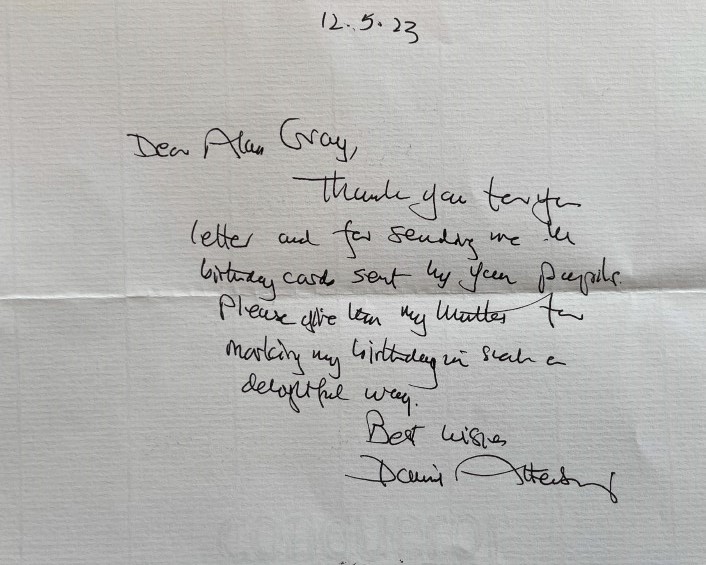 12.5.23
Dear Alan Gray,
Thank you for your
letter and for sending me the
birthday cards sent by your pupils.
Please give them my thanks for
marking my birthday in such a
delightful way.
Best wishes
David Attenborough
conqueror